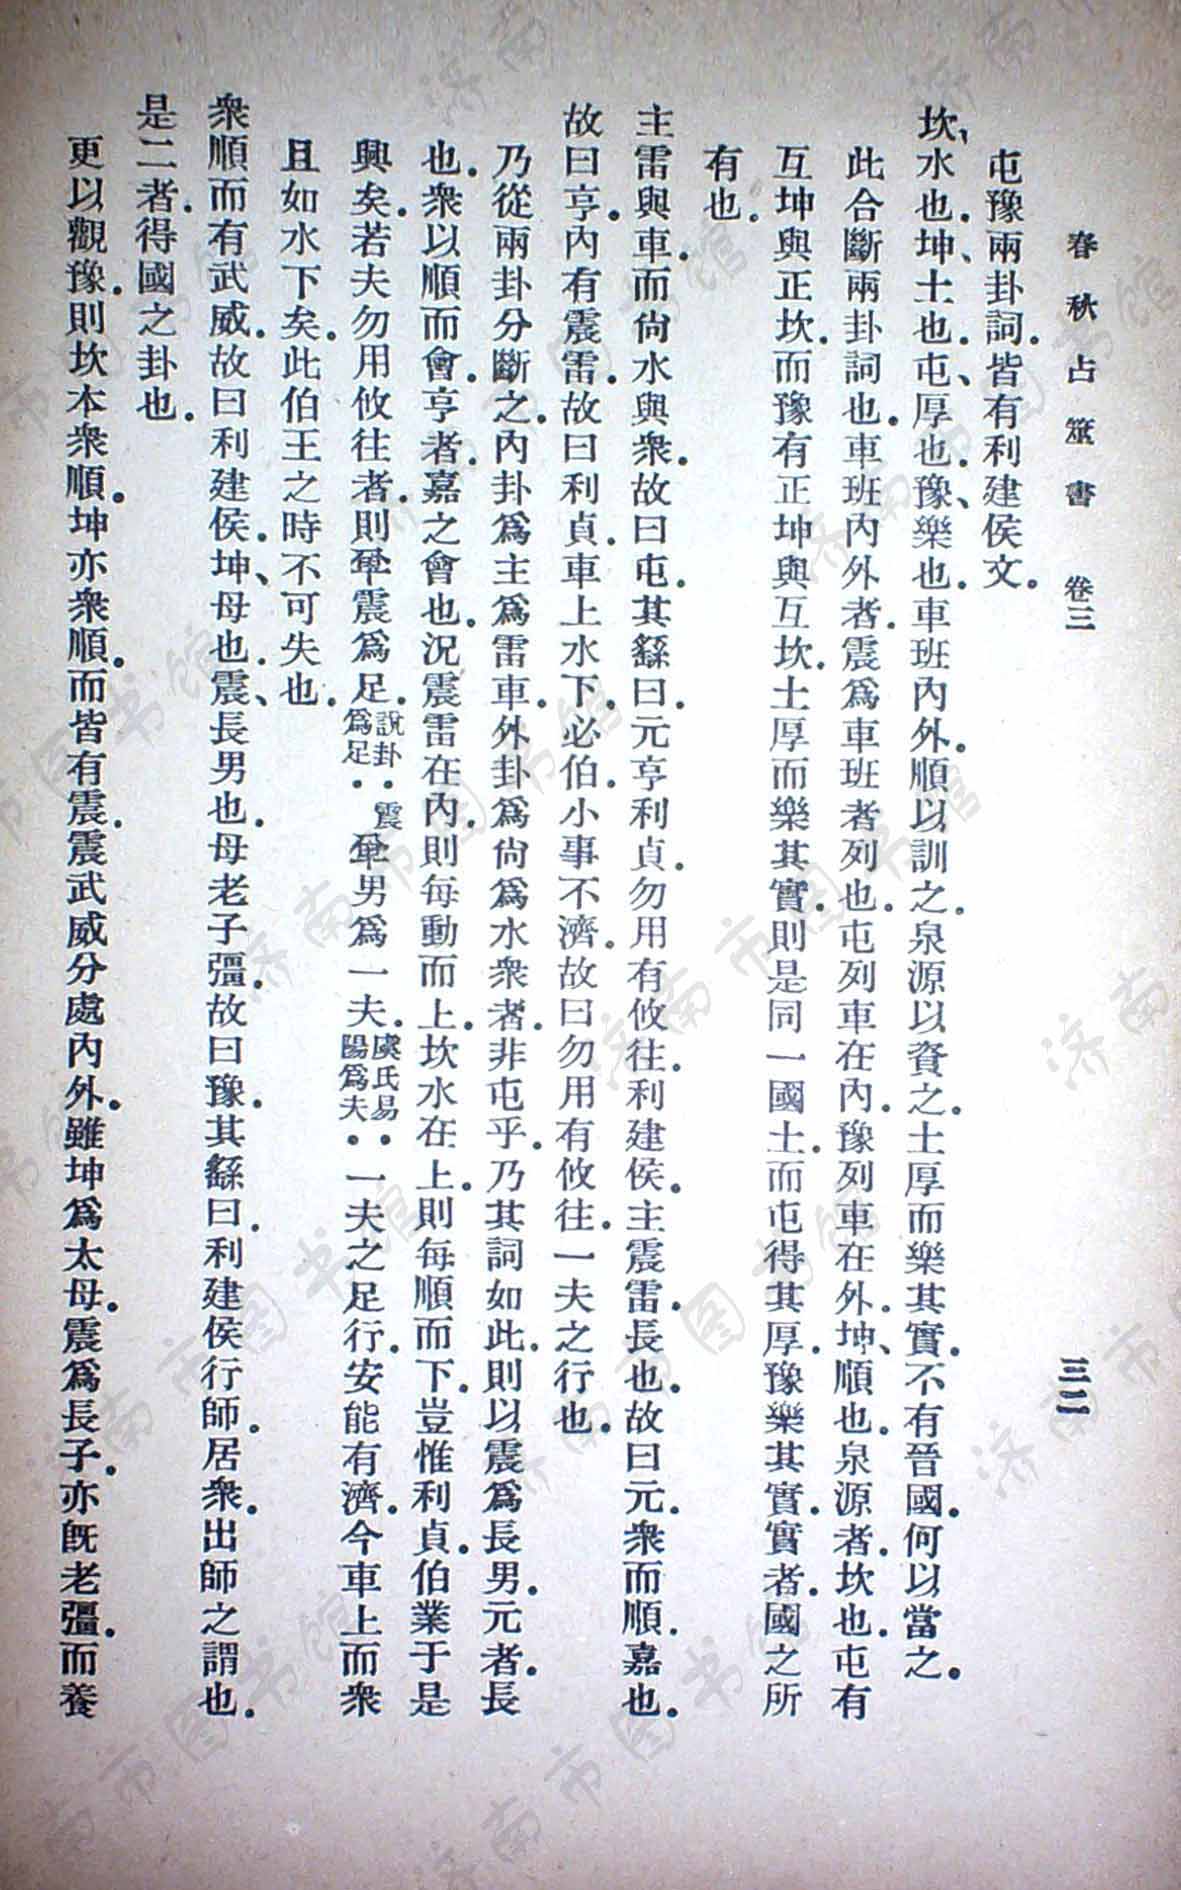 春秋占筮書 卷三 三二
屯豫兩卦詞.皆有利建侯文.
坎、水也.坤、土也.屯、厚也.豫、樂也.車班內外.順以訓之.泉源以資之.土厚而樂其實.不有晉國.何以當之.
此合斷兩卦詞也.車班內外者.震爲車班者列也.屯列車在內.豫列車在外.坤、順也.泉源者.坎也.屯有
互坤與正坎.而豫有正坤與互坎.土厚而樂其實.則是同一國土.而屯得其厚.豫樂其實.實者.國之所
有也.
主雷與車.而尙水與衆.故曰屯.其繇曰.元亨利貞.勿用有攸往.利建侯.主震雷.長也.故曰元.衆而順.嘉也.
故曰亨.內有震雷.故曰利貞.車上水下.必伯.小事不濟.故曰勿用有攸往.一夫之行也.
乃從兩卦分斷之.內卦爲主爲雷車.外卦爲尙爲水衆者.非屯乎.乃其詞如此.則以震爲長男.元者.長
也.衆以順而會.亨者.嘉之會也.況震雷在內.則每動而上.坎水在上.則每順而下.豈惟利貞.伯業于是
興矣.若夫勿用攸往者.則單震爲足.說卦.震爲足.單男爲一夫.虞氏易.陽爲夫.一夫之足行.安能有濟.今車上而衆
且如水下矣.此伯王之時不可失也.
衆順而有武威.故曰利建侯.坤、母也.震、長男也.母老子彊.故曰豫.其繇曰.利建侯行師.居衆.出師之謂也.
是二者.得國之卦也.
更以觀豫.則坎本衆順.坤亦衆順.而皆有震.震武威分處內外.雖坤爲太母.震爲長子.亦旣老彊.而養